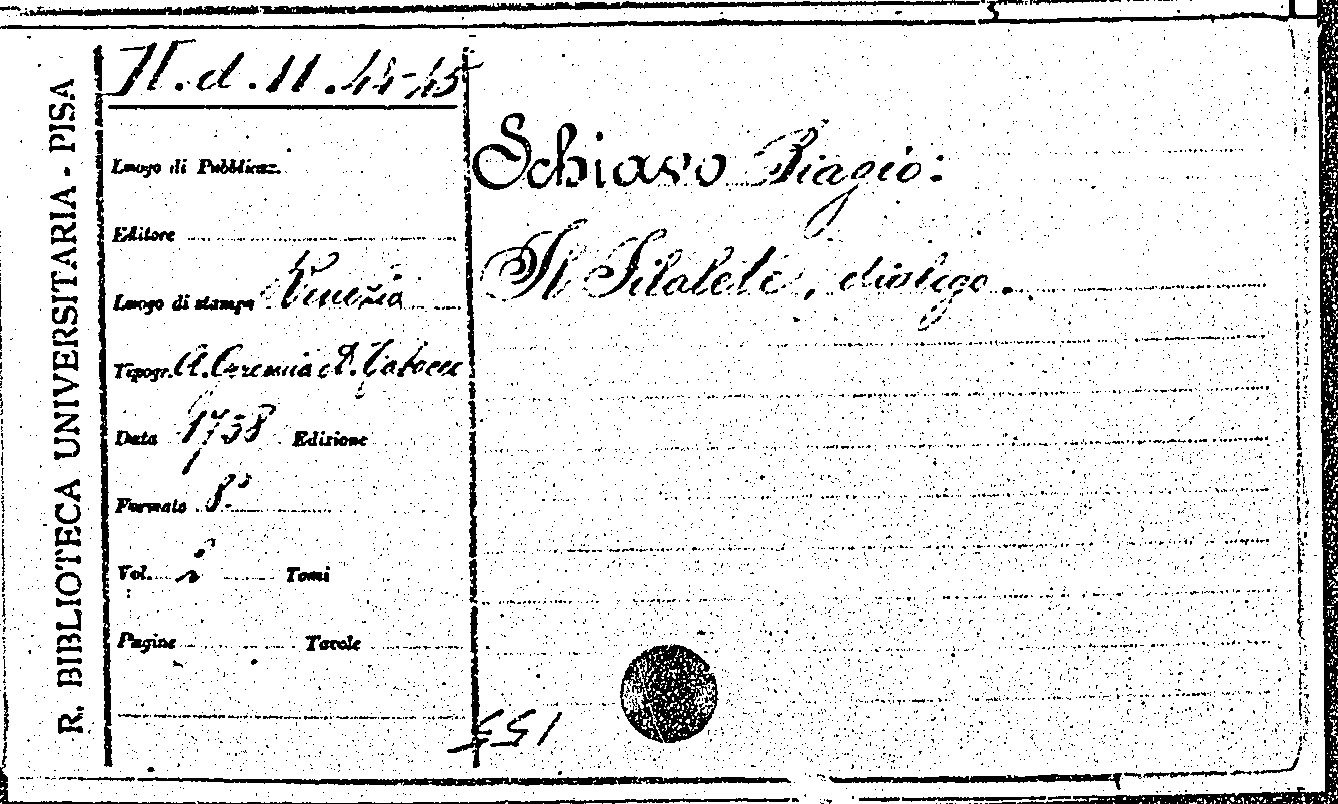 R. BIBLIOTECA UNIVERSITARIA - PISA
H.d.11.44-45
Luogo di Pubblicaz.
Editore
Luogo di stampa Venezia
Tipogr. A. Geremia e A. Tabacco
Data 1738 Edizione
Formato 8°
Vol. 2 Tomi
Pagine Tavole
Schiavo Biagio:
Il Filalete, dialogo.